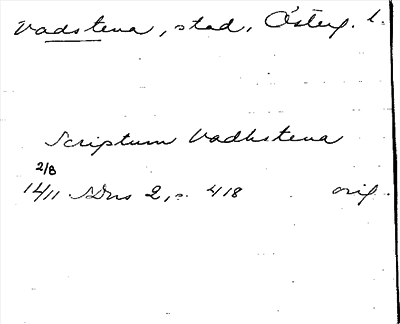 Vadstena, stad, Österg. l.
Scriptum Vadhstena
2/8
1411 SDns 2, s. 418 orig.